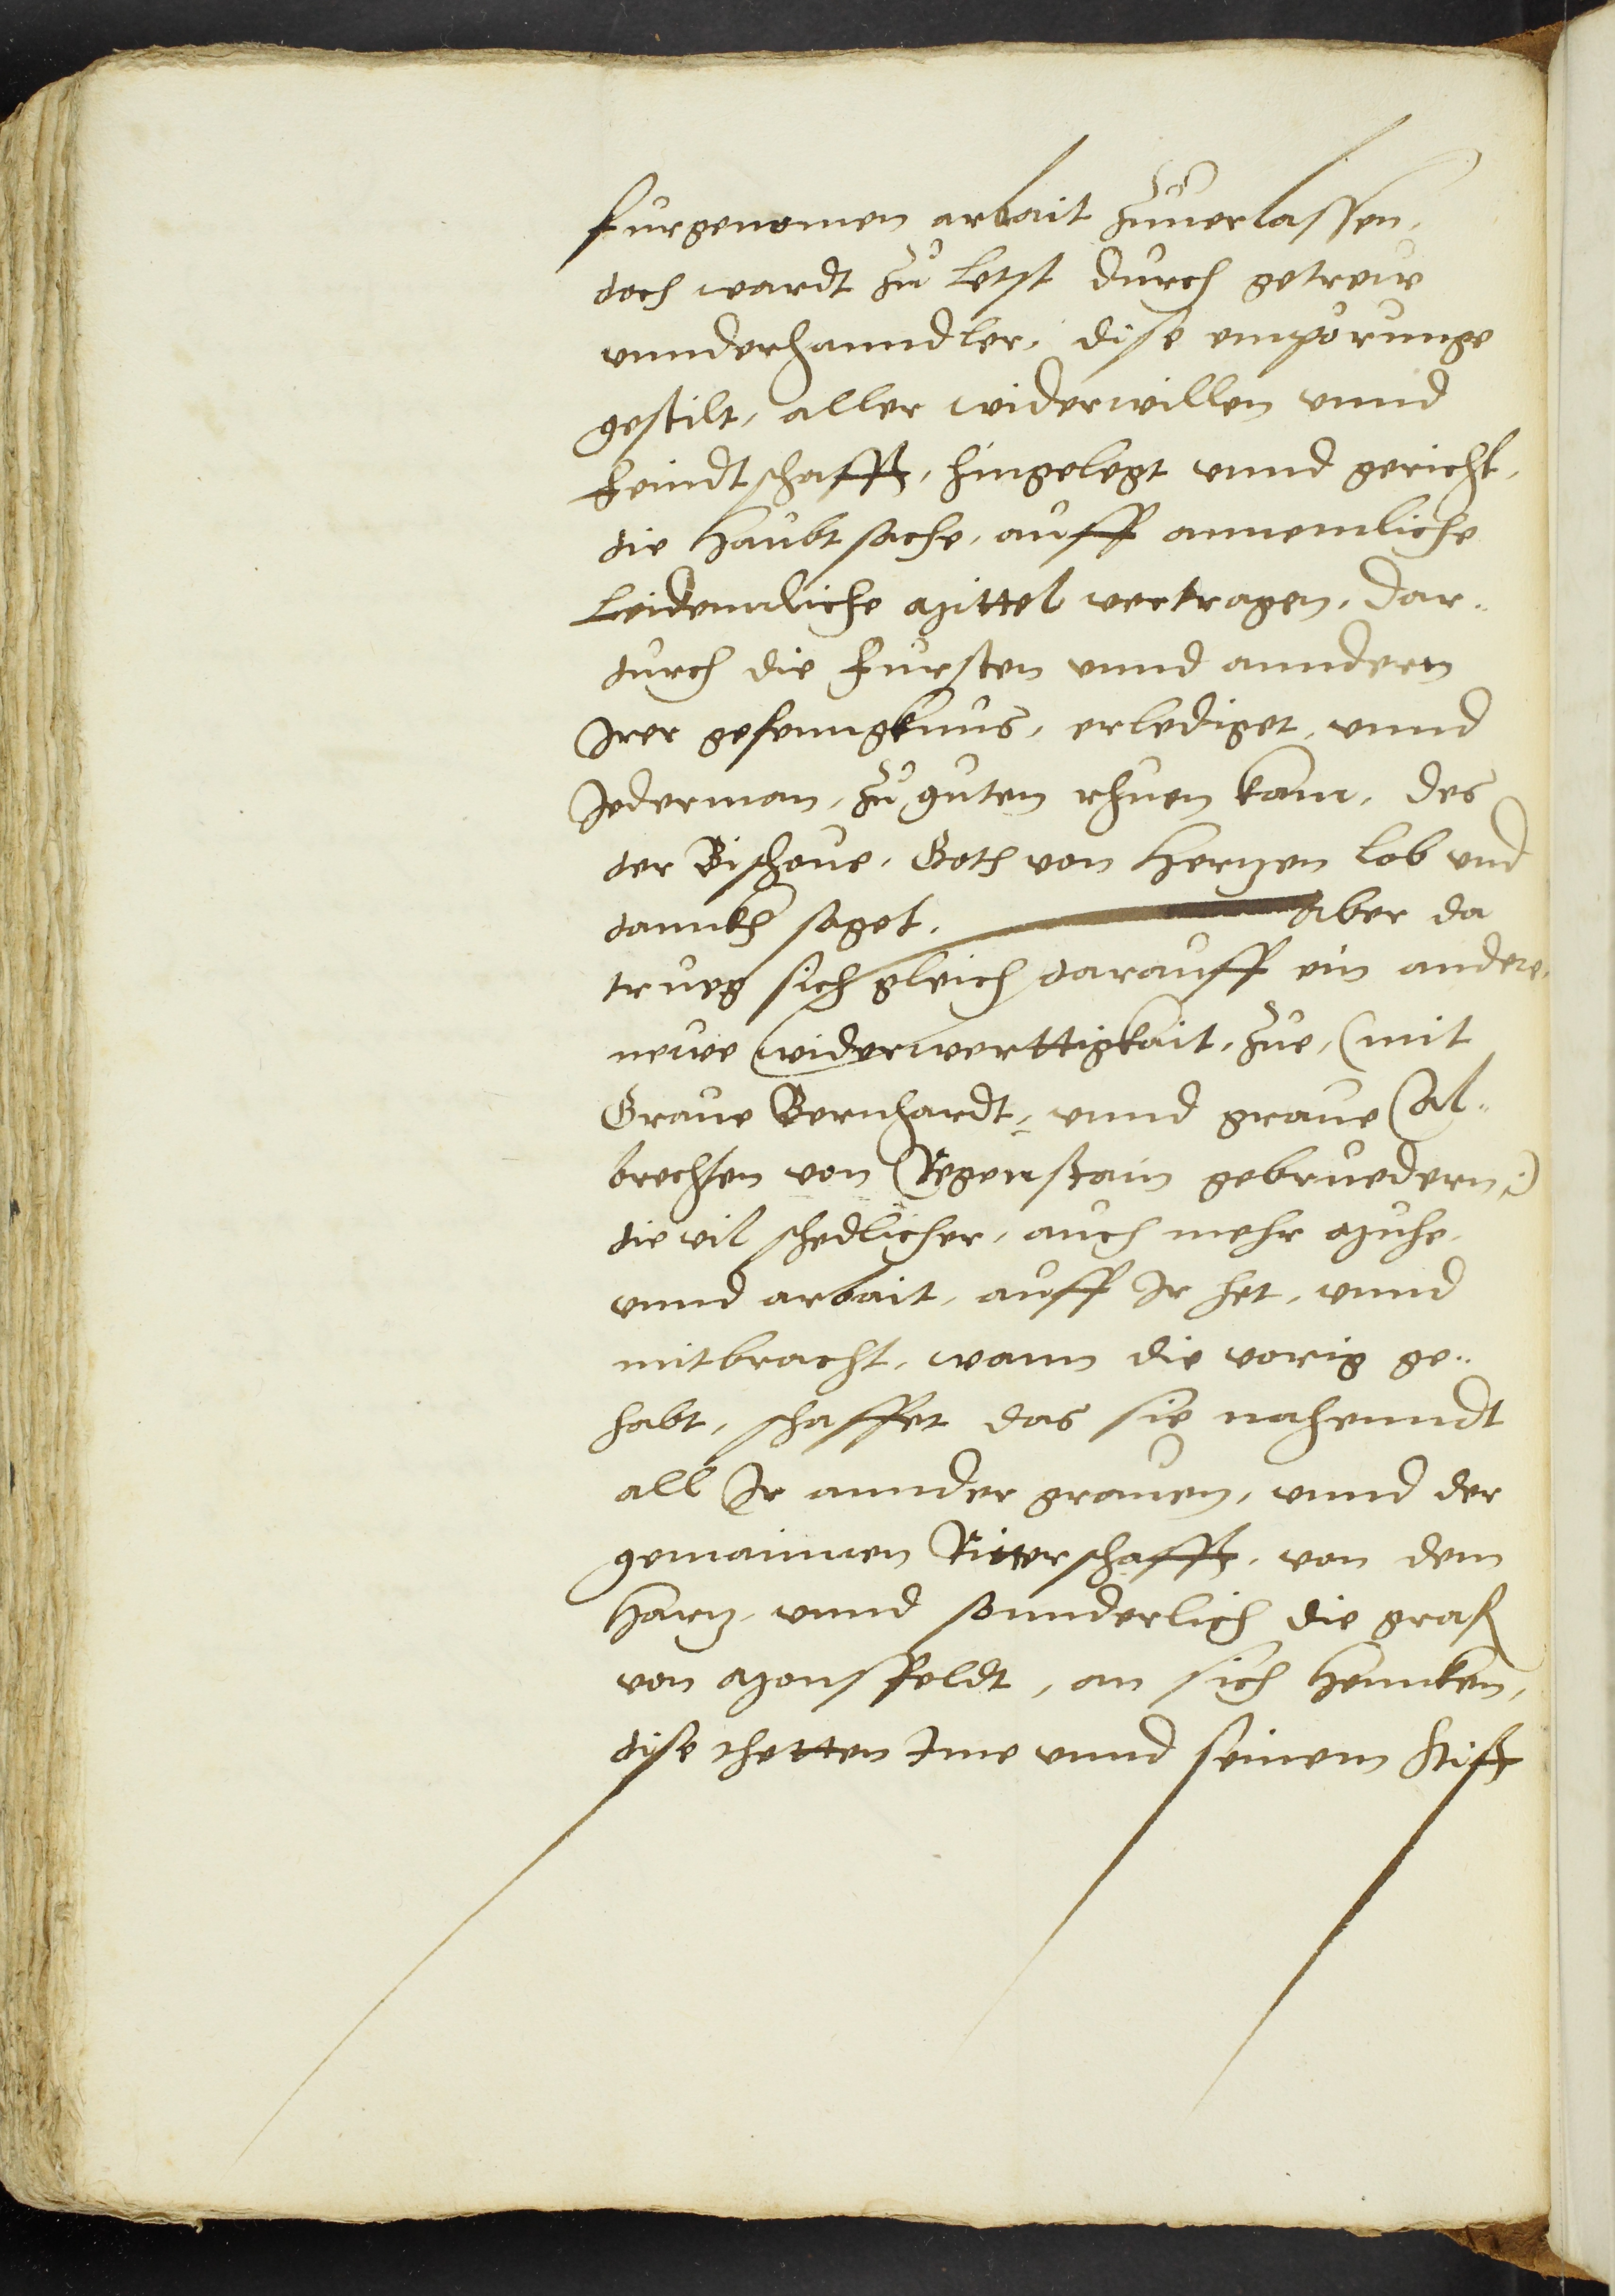 furgenomen arbait zuuerlassen,
doch wardt zu letst durch getreue
unnderhanndler, dise emporunge
gestilt, aller widerwillen unnd
feindtschafft, hingelegt unnd gericht,
die Haubtsache, auff annemliche
leidennliche Mittel vertragen, dar¨
durch die Fursten unnd anndern
Irer gefenngknus, erlediget, unnd
Jederman, zu guten rhuen kam, des
der Bischoue, Goth von Hertzen lob und
dannkh saget. Aber da
trueg sich gleich darauff ein andere,
newe widerwerttigkait, zue, (mit
Graue Bernhardt, unnd graue Al¨
brechten von Regenstain gebruedern,)
die vil schedlicher, auch mehr Muhe,
unnd arbait, auff Ir het, unnd
mitbracht, wann die vorig ge¨
habt, schaffet das sie nahenndt
all Ir annder grauen, unnd der
gemainnen Ritterschafft, von dem
Hartz, unnd sonnderlich die graf
von Mansfeldt, an sich hennken,
dise thetten Ime unnd seinem Stifft